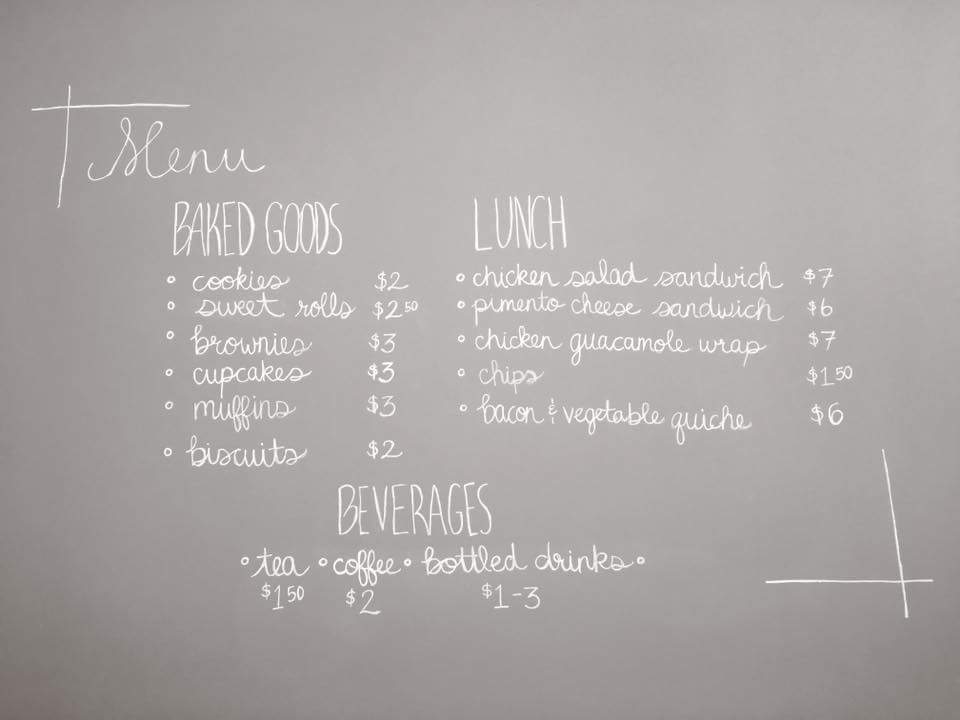 Menu
BAKED GOODS
◦ cookies $2
◦ sweet rolls $2 50
◦ brownies $3
◦ cupcakes $3
◦ muffins $3
◦ biscuits $2
LUNCH
◦ chicken salad sandwich $7
◦ pimento cheese sandwich $6
◦ chicken guacamole wrap $7
◦ chips $1 50
◦ bacon & vegetable quiche $6
BEVERAGES
◦ tea ◦ coffee ◦ bottled drinks ◦
$1 50 $2 $1-3